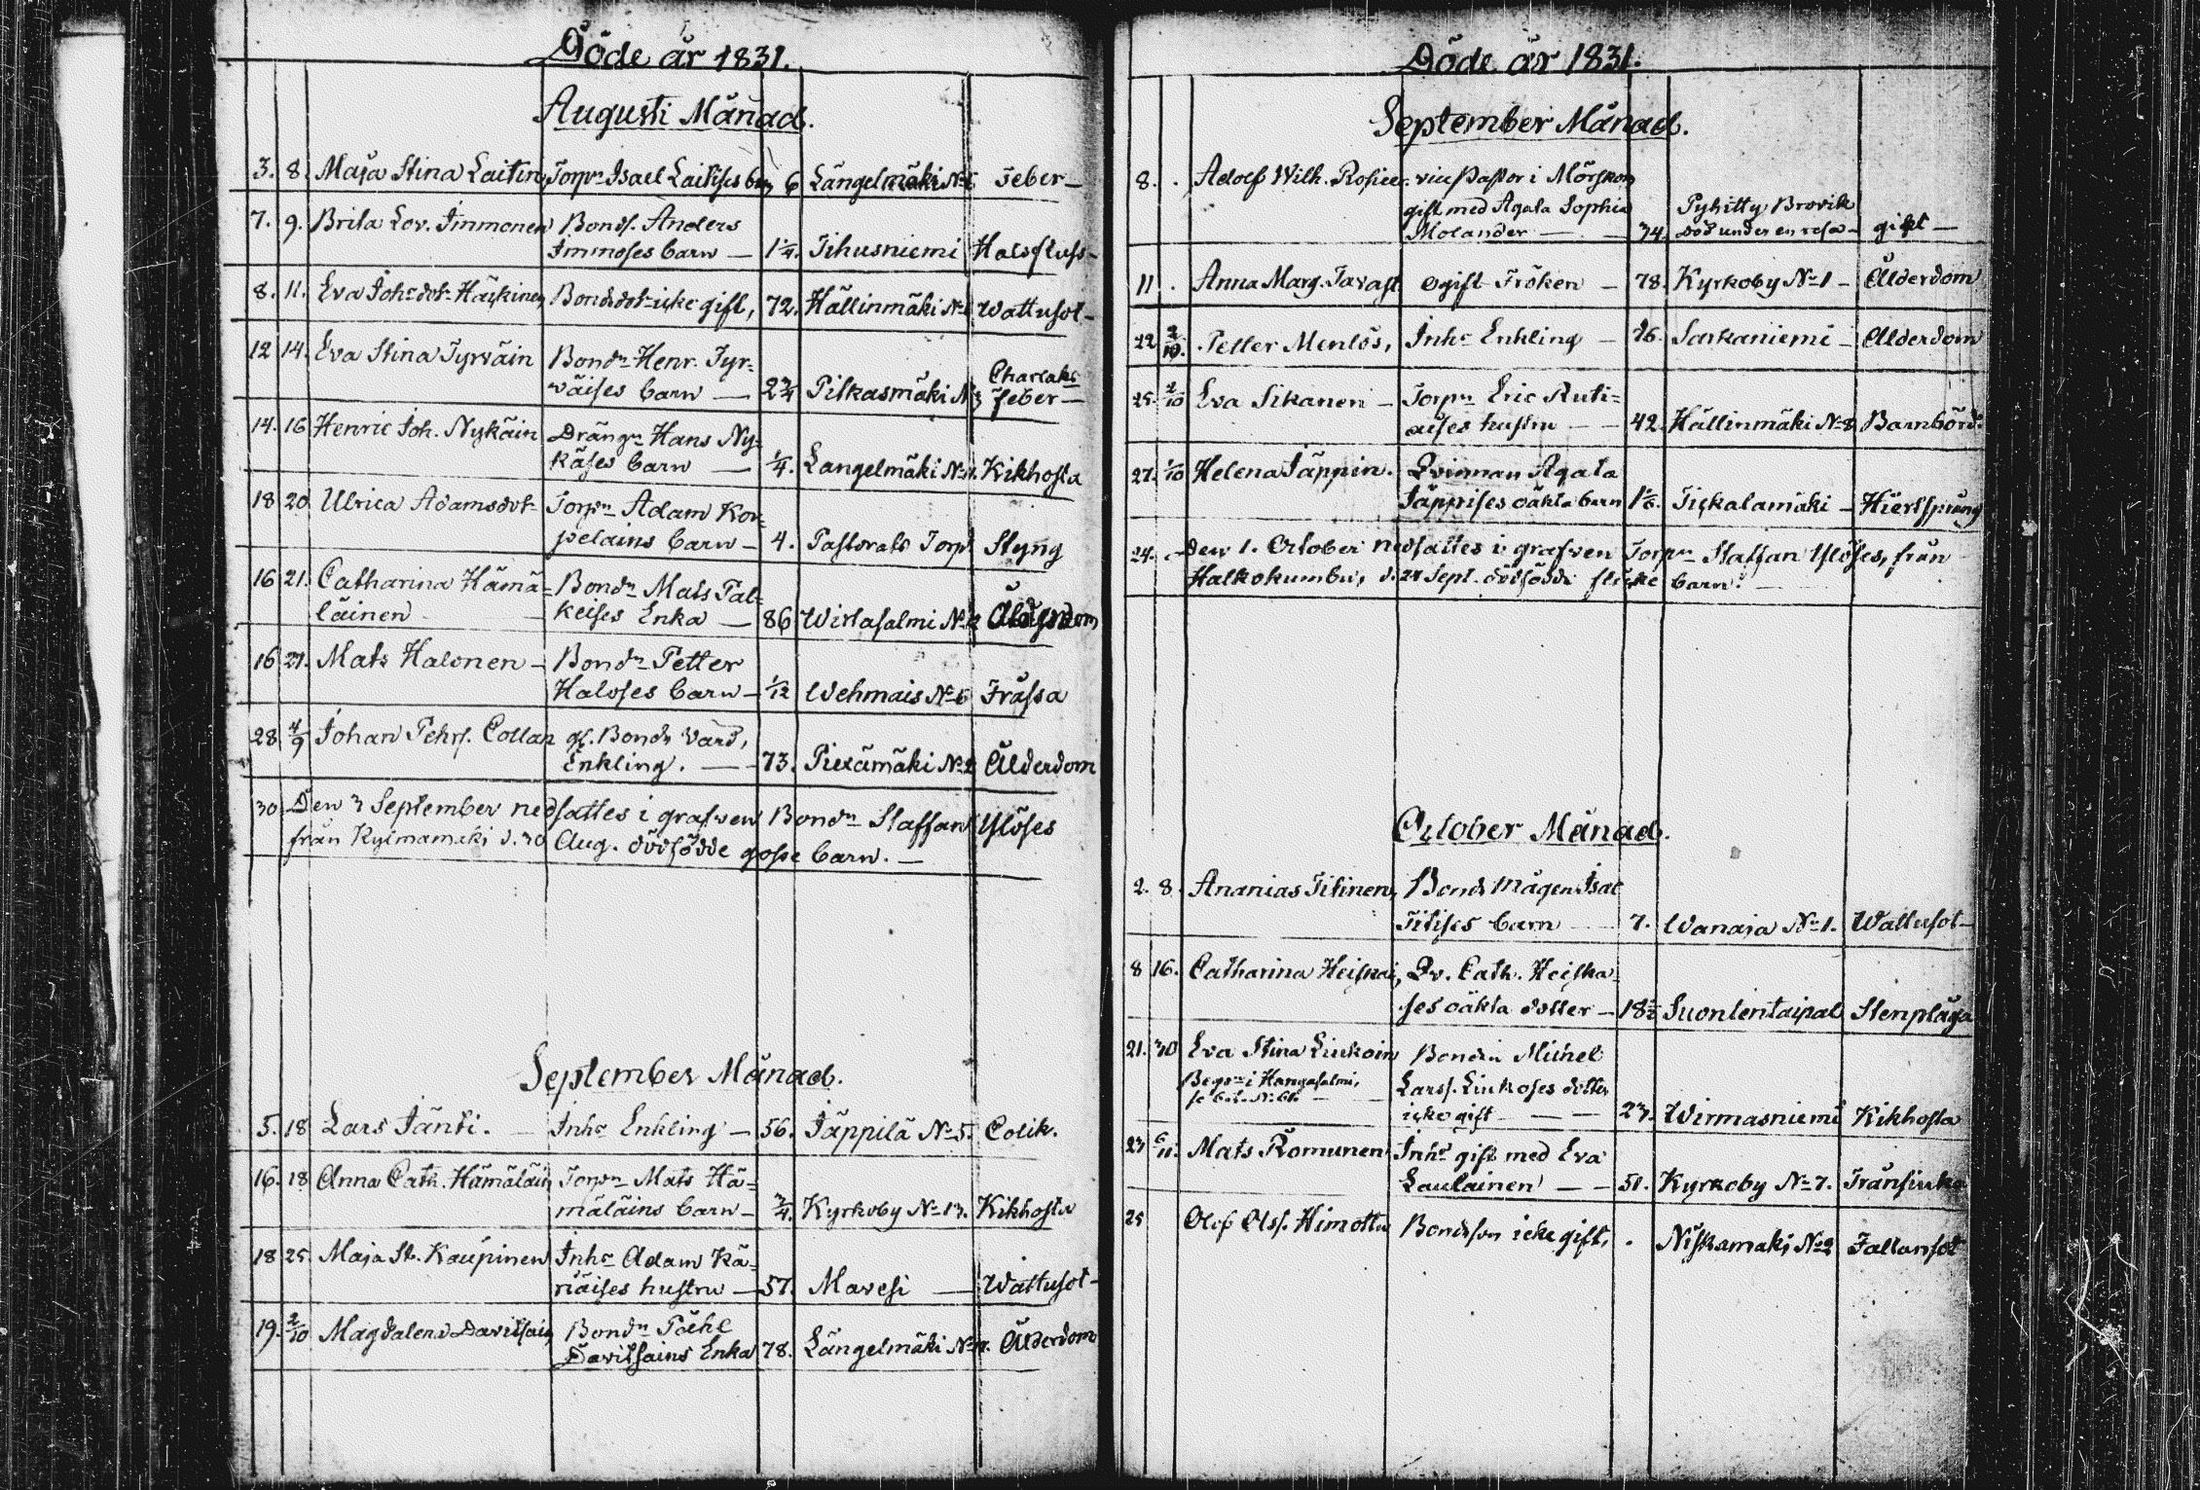 Döde år 1831.
Augusti Månad.
3. 8. Maja Stina Laitin, Torpn Isael Laitises barn 6 Längelmäki No Feber
7. 9. Brita Lov. Immonen Bonds. Anders
Immoses barn — 1¼. Tihusniemi Halsfluss
8. 11. Eva Johsdotr Häskinen, Bondedotr icke gift, 72. Hällinmäki No Wattusot
12 14. Eva Stina Tyrväin Bondn Henr. Tyr-
wäises barn — 2¾ Pitkasmäki No 3 Charlaks
feber —
14. 16 Henric Joh. Nykäin Drängn Hans Ny-
käses barn — ¼. Langelmäki No Kikhosta
18 20 Ulrica Adamsdotr Torpn Adam Kor-
pelains barn — 4. Pastorats Torp Styng
16 21. Catharina Hämä- Bondn Mats Pal-
läinen keises Enka — 86 Wirtasalmi No Ålderdom
16 21. Mats Halonen — Bondn Petter
Haloses barn — 1/12 Wehmais No 6 Tråssa
28 4/9 Johan Pehrs. Collan gl. Bonde Vard,
Enkling. — 73. Piexämäki No 2 Ålderdom
30 Den 3 September nedsattes i grafven Bondn Staffan Ylöses
från Kylmamäki d. 30 Aug. dödfödde gosse barn. —
September Månad.
5. 18 Lars Jänti. Inhs Enkling — 56. Jäppilä No 5. Colik.
16. 18 Anna Cath. Hämäläin, Torpn Mats Hä-
mäläins barn — ¾. Kyrkoby No 13. Kikhosta
18 25 Maja St. Kaupinen Inhs Adam Kä-
riäises hustru — 57. Mavesi — Wattusot —
19. 2/10 Magdalena Davitsain, Bondn Påhl
Davitsains Enka 78. Längelmäki No Ålderdom
Döde år 1831.
September Månad.
8. . Adolf Wilh. Rosiee. vice Pastor i Mörskom
gift med Agata Sophia Pyhitty Brovik
Molander — 34. död under en resa — gikt —
11 . Anna Marg. Tavast ogift Fröken — 78. Kyrkoby No 1 — Ålderdom
22 2/10. Petter Menlös, Inhs Enkling — 76. Sarkaniemi — Ålderdom
25. 2/10 Eva Sikanen — Torpn Eric Ruti-
aises hustru — 42. Hällinmäki No 8 Barnbörd.
27. 1/10 Helena Jäppin. Qvinnan Agata
Jäppises oäkta barn 1⅙. Tickalamäki — Hiertsprång
24. Den 1. October nedsattes i grafven Torpn Staffan Ylöses, från
Halkokumbu, d. 24 Sept. dödfödde flicke barn. —
October Månad.
2. 8. Ananias Titinen, Bonds Mågen Isac
Titises barn — 7. Wanaja No 1. Wattusot —
8 16. Catharina Heiskai, Qv. Cath. Heiska-
ses oäkta dotter — 18½ Suontentaipal Stenplåga
21. 30 Eva Stina Liukoin Bondn Michel
Begrn i Hangasalmi, Larss. Liukoses dotter
icke gift — 23. Wirmasniemi Kikhosta
23 6/11. Mats Romunen Inhs gift med Eva
Laulainen — 51. Kyrkoby No 7. Tränsiuka
25 Olof Olss. Himottu Bondeson icke gift, . Niskamäki No 2 Fallansot